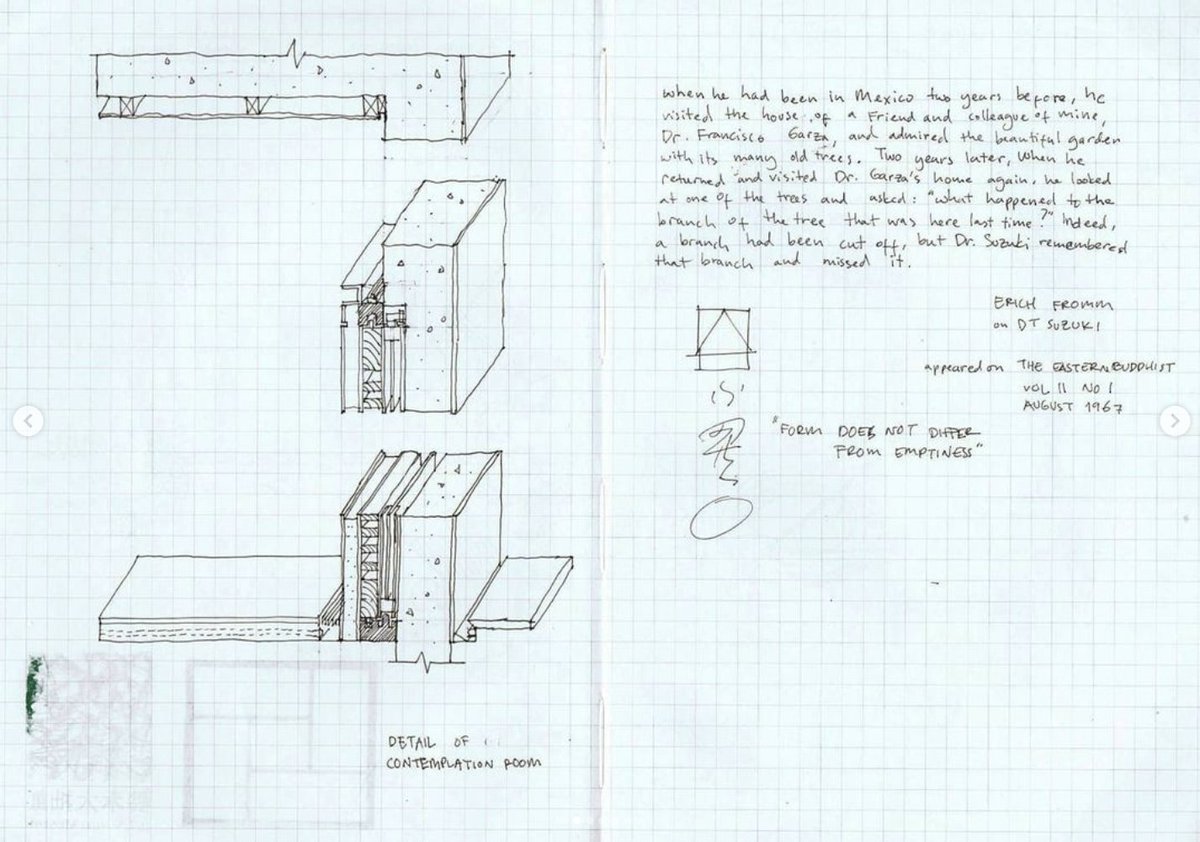 DETAIL OF
CONTEMPLATION ROOM
when he had been in Mexico two years before, he
visited the house of a Friend and colleague of mine,
Dr. Francisco Garza, and admired the beautiful garden
with its many old trees. Two years later, when he
returned and visited Dr. Garza's home again, he looked
at one of the trees and asked: "what happened to the
branch of the tree that was here last time?" Indeed,
a branch had been cut off, but Dr. Suzuki remembered
that branch and missed it.
ERICH FROMM
on DT SUZUKI
appeared on THE EASTERN BUDDHIST
VOL II NO 1
AUGUST 1967
心
"FORM DOES NOT DIFFER
FROM EMPTINESS"